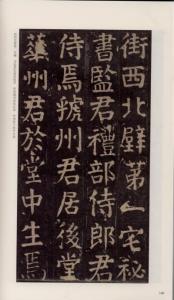 街西北壁第一宅祕
書監君禮部侍郎君
侍焉虢州君居後堂
華州君於堂中生焉